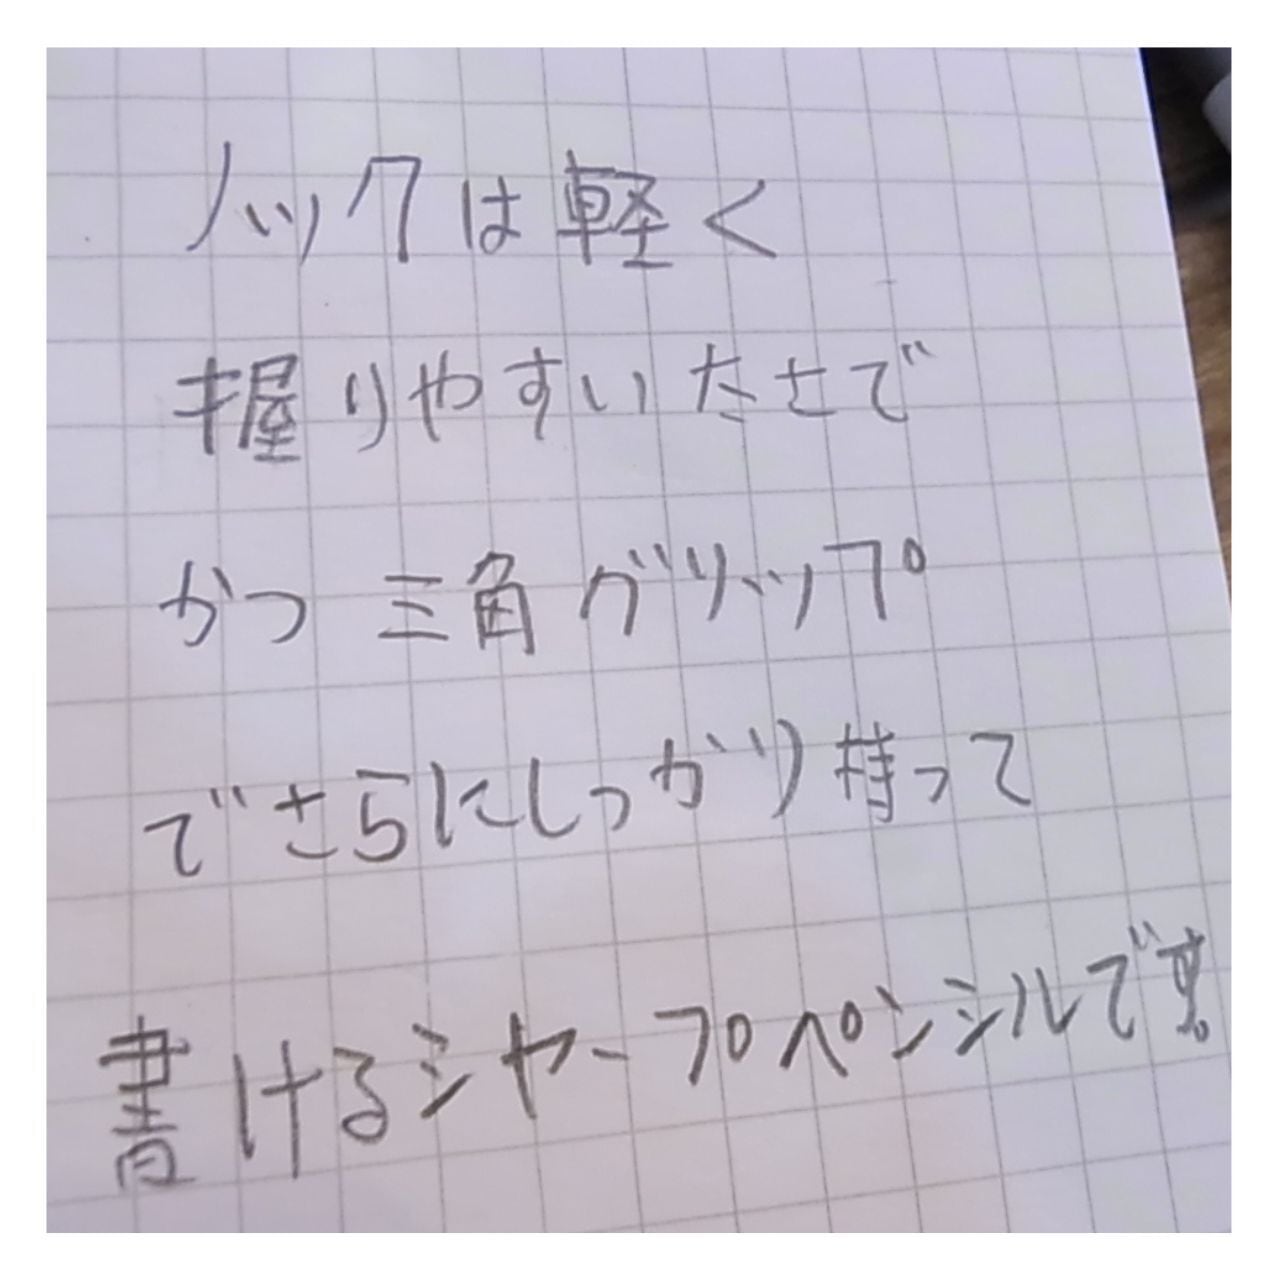 ノックは軽く
握りやすいたさで
かつ 三角グリップ
でさらにしっかり持って
書けるシャープペンシルです。